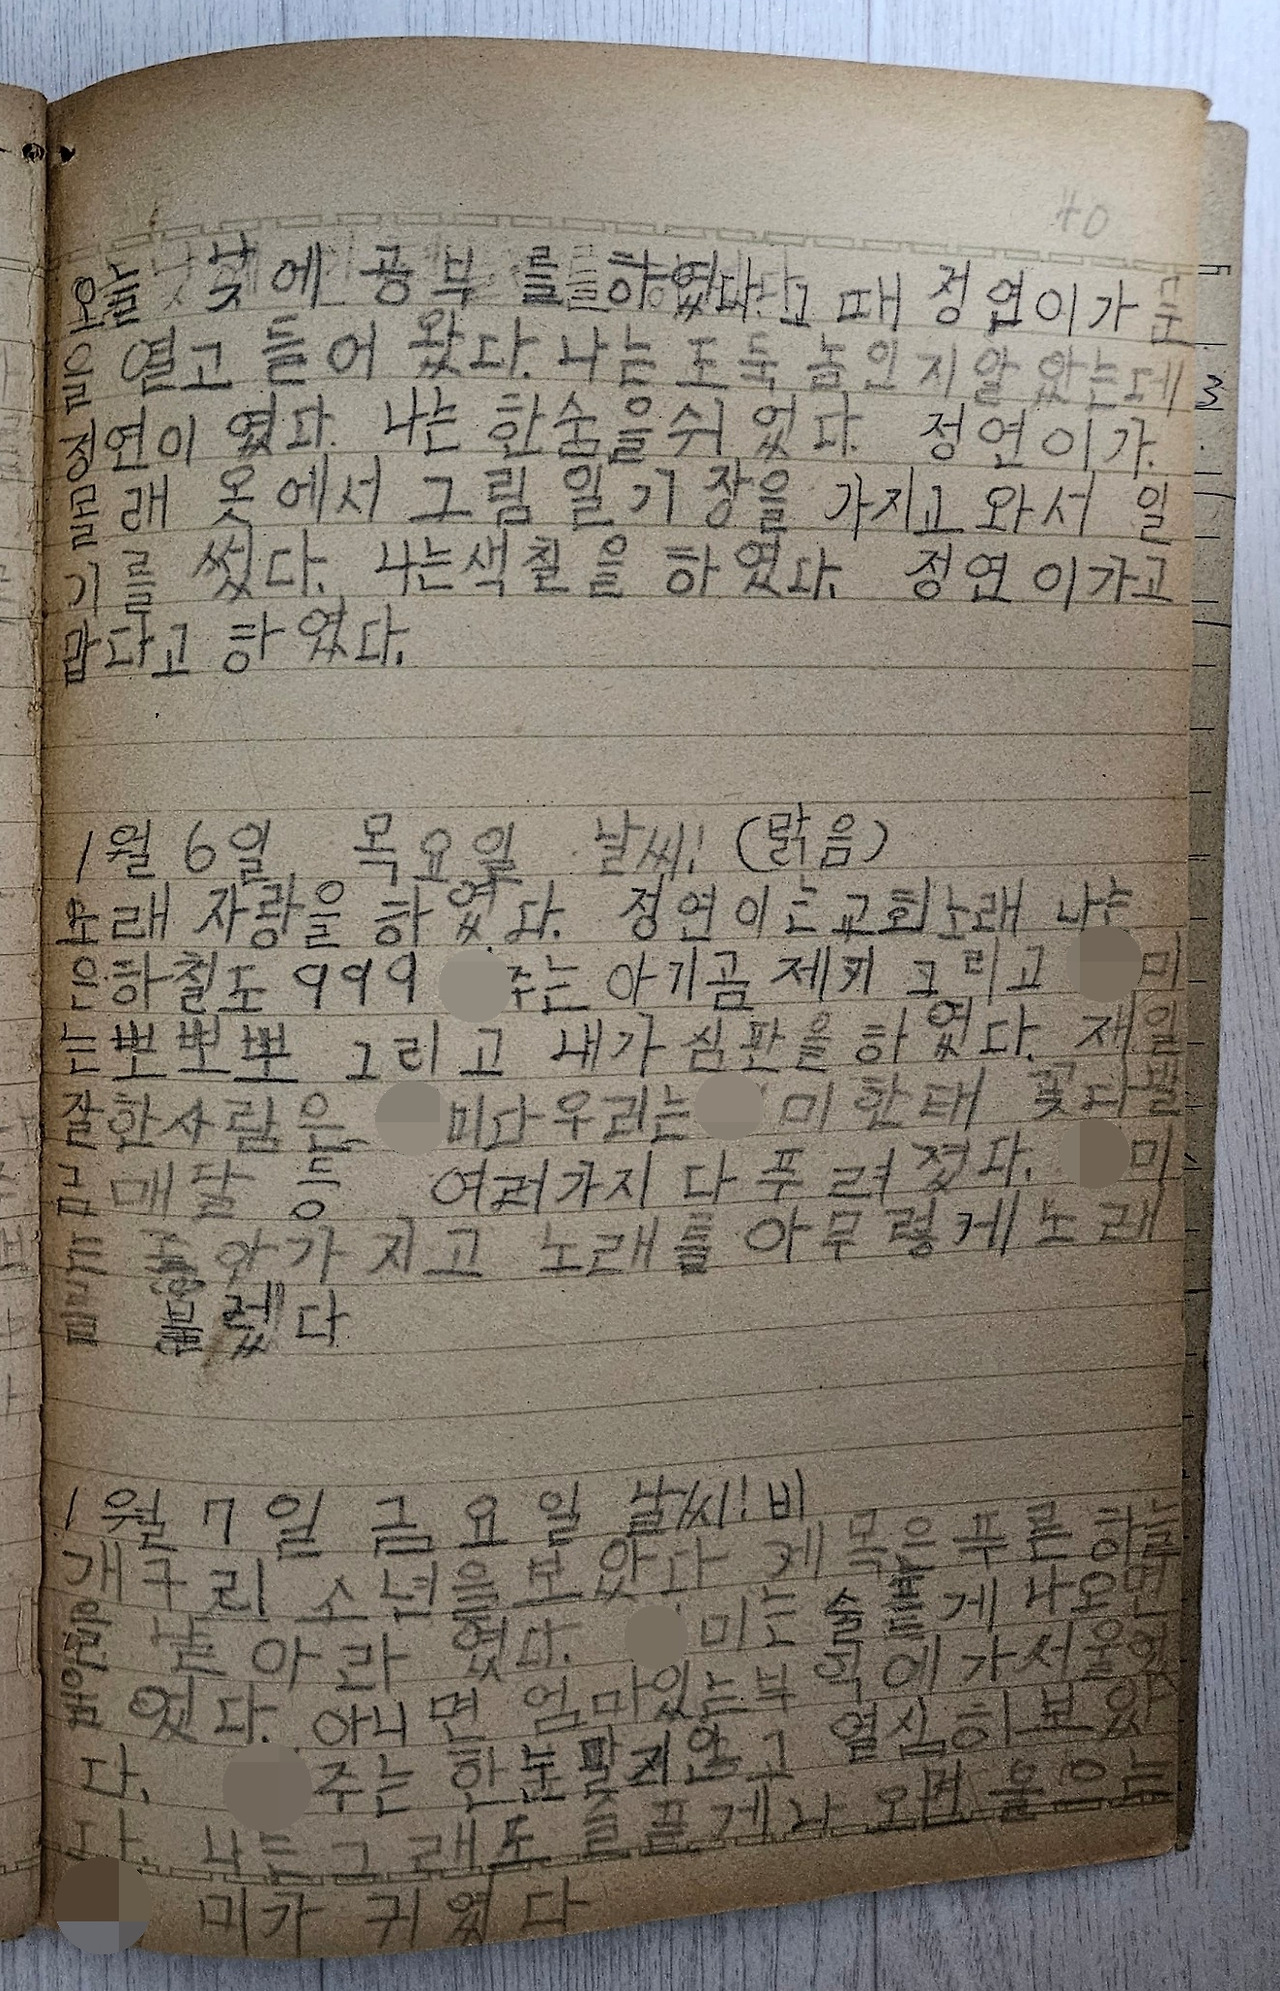 40
오늘 낮에 공부를 하였다. 그 때 정연이가 문
을 열고 들어 왔다. 나는 도둑 놈인지알았는데
정연이 였다. 나는 한숨을쉬었다. 정연이가.
몰래 옷에서 그림 일기장을 가지고 와서 일
기를 썼다. 나는색칠을 하였다. 정연이가고
맙다고 하였다.
1월 6일 목요일 날씨! (맑음)
노래 자랑을 하였다. 정연이는교회노래 나는
은하철도 999 주는 아기곰 제키 그리고 미
는뽀뽀뽀 그리고 내가 심판을 하였다. 재일
잘한사람은 미다 우리는 미한태 꽃다발
금매달 등 여러가지 다 푸려 젔다. 미
는 가지고 노래를 아무렇게 노래
를 불렀다
1월 7일 금요일 날씨! 비
개구리 소년을 보았다 케목은 푸른 하늘
을 날아라 였다. 미는 슬플게 나오면
었다. 아니면 엄마있는부엌에가서울었
다. 주는 한눈팔지안고 열심히보았
다. 나는그래도 슬플게나오면 울으는
미가 귀였다